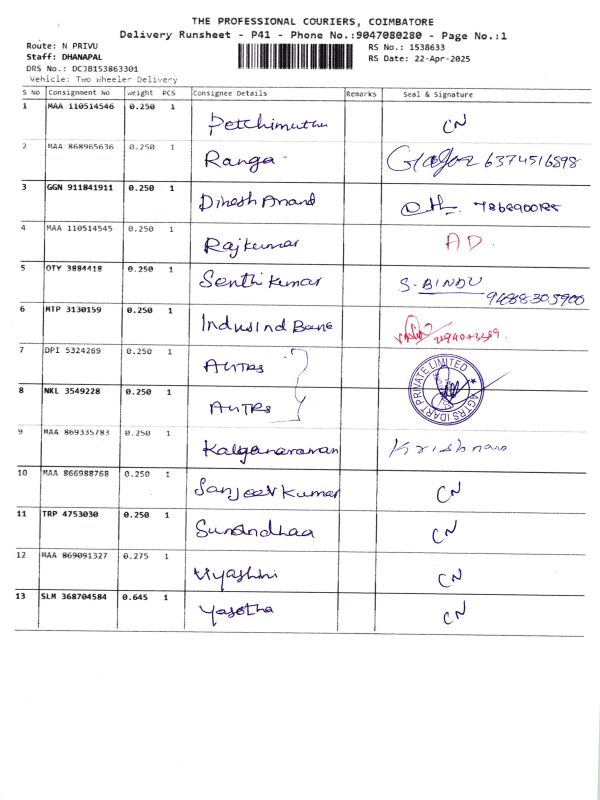 THE PROFESSIONAL COURIERS, COIMBATORE
Delivery Runsheet - P41 - Phone No.:9047080280 - Page No.:1
Route: N PRIVU RS No.: 1538633
Staff: DHANAPAL RS Date: 22-Apr-2025
DRS No.: DCJB153863301
Vehicle: Two Wheeler Delivery
S No Consignment No Weight PCS Consignee Details Remarks Seal & Signature
1 MAA 110514546 0.250 1 Petchimuthu CN
2 MAA 868965636 0.250 1 Ranga 6374516898
3 GGN 911841911 0.250 1 Dinesh Anand
4 MAA 110514545 0.250 1 Rajkumar AD.
5 OTY 3884418 0.250 1 Senthi Kumar S. BINDU
9688305900
6 MTP 3130159 0.250 1 IndusInd Bane
7 DPI 5324269 0.250 1
8 NKL 3549228 0.250 1
PRIVATE LIMITED
9 MAA 869335783 0.250 1 Krishnan
10 MAA 866988768 0.250 1 Sanjeev Kumar CN
11 TRP 4753030 0.250 1 Sunandhaa CN
12 MAA 869091327 0.275 1 Viyashini CN
13 SLM 368704584 0.645 1 Yasotha CN